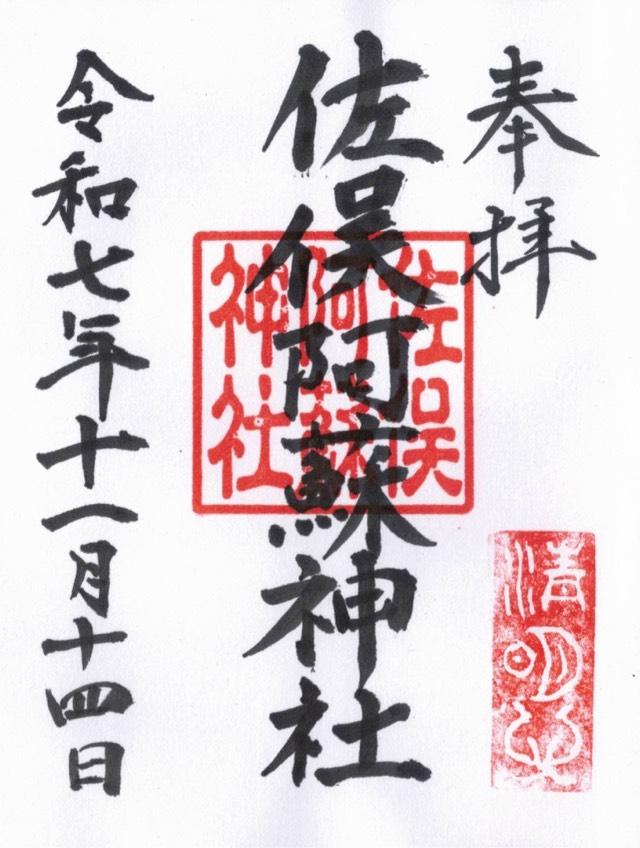 奉拝
佐俣阿蘇神社
佐俣
阿蘇
神社
清明心
令和七年十一月十四日